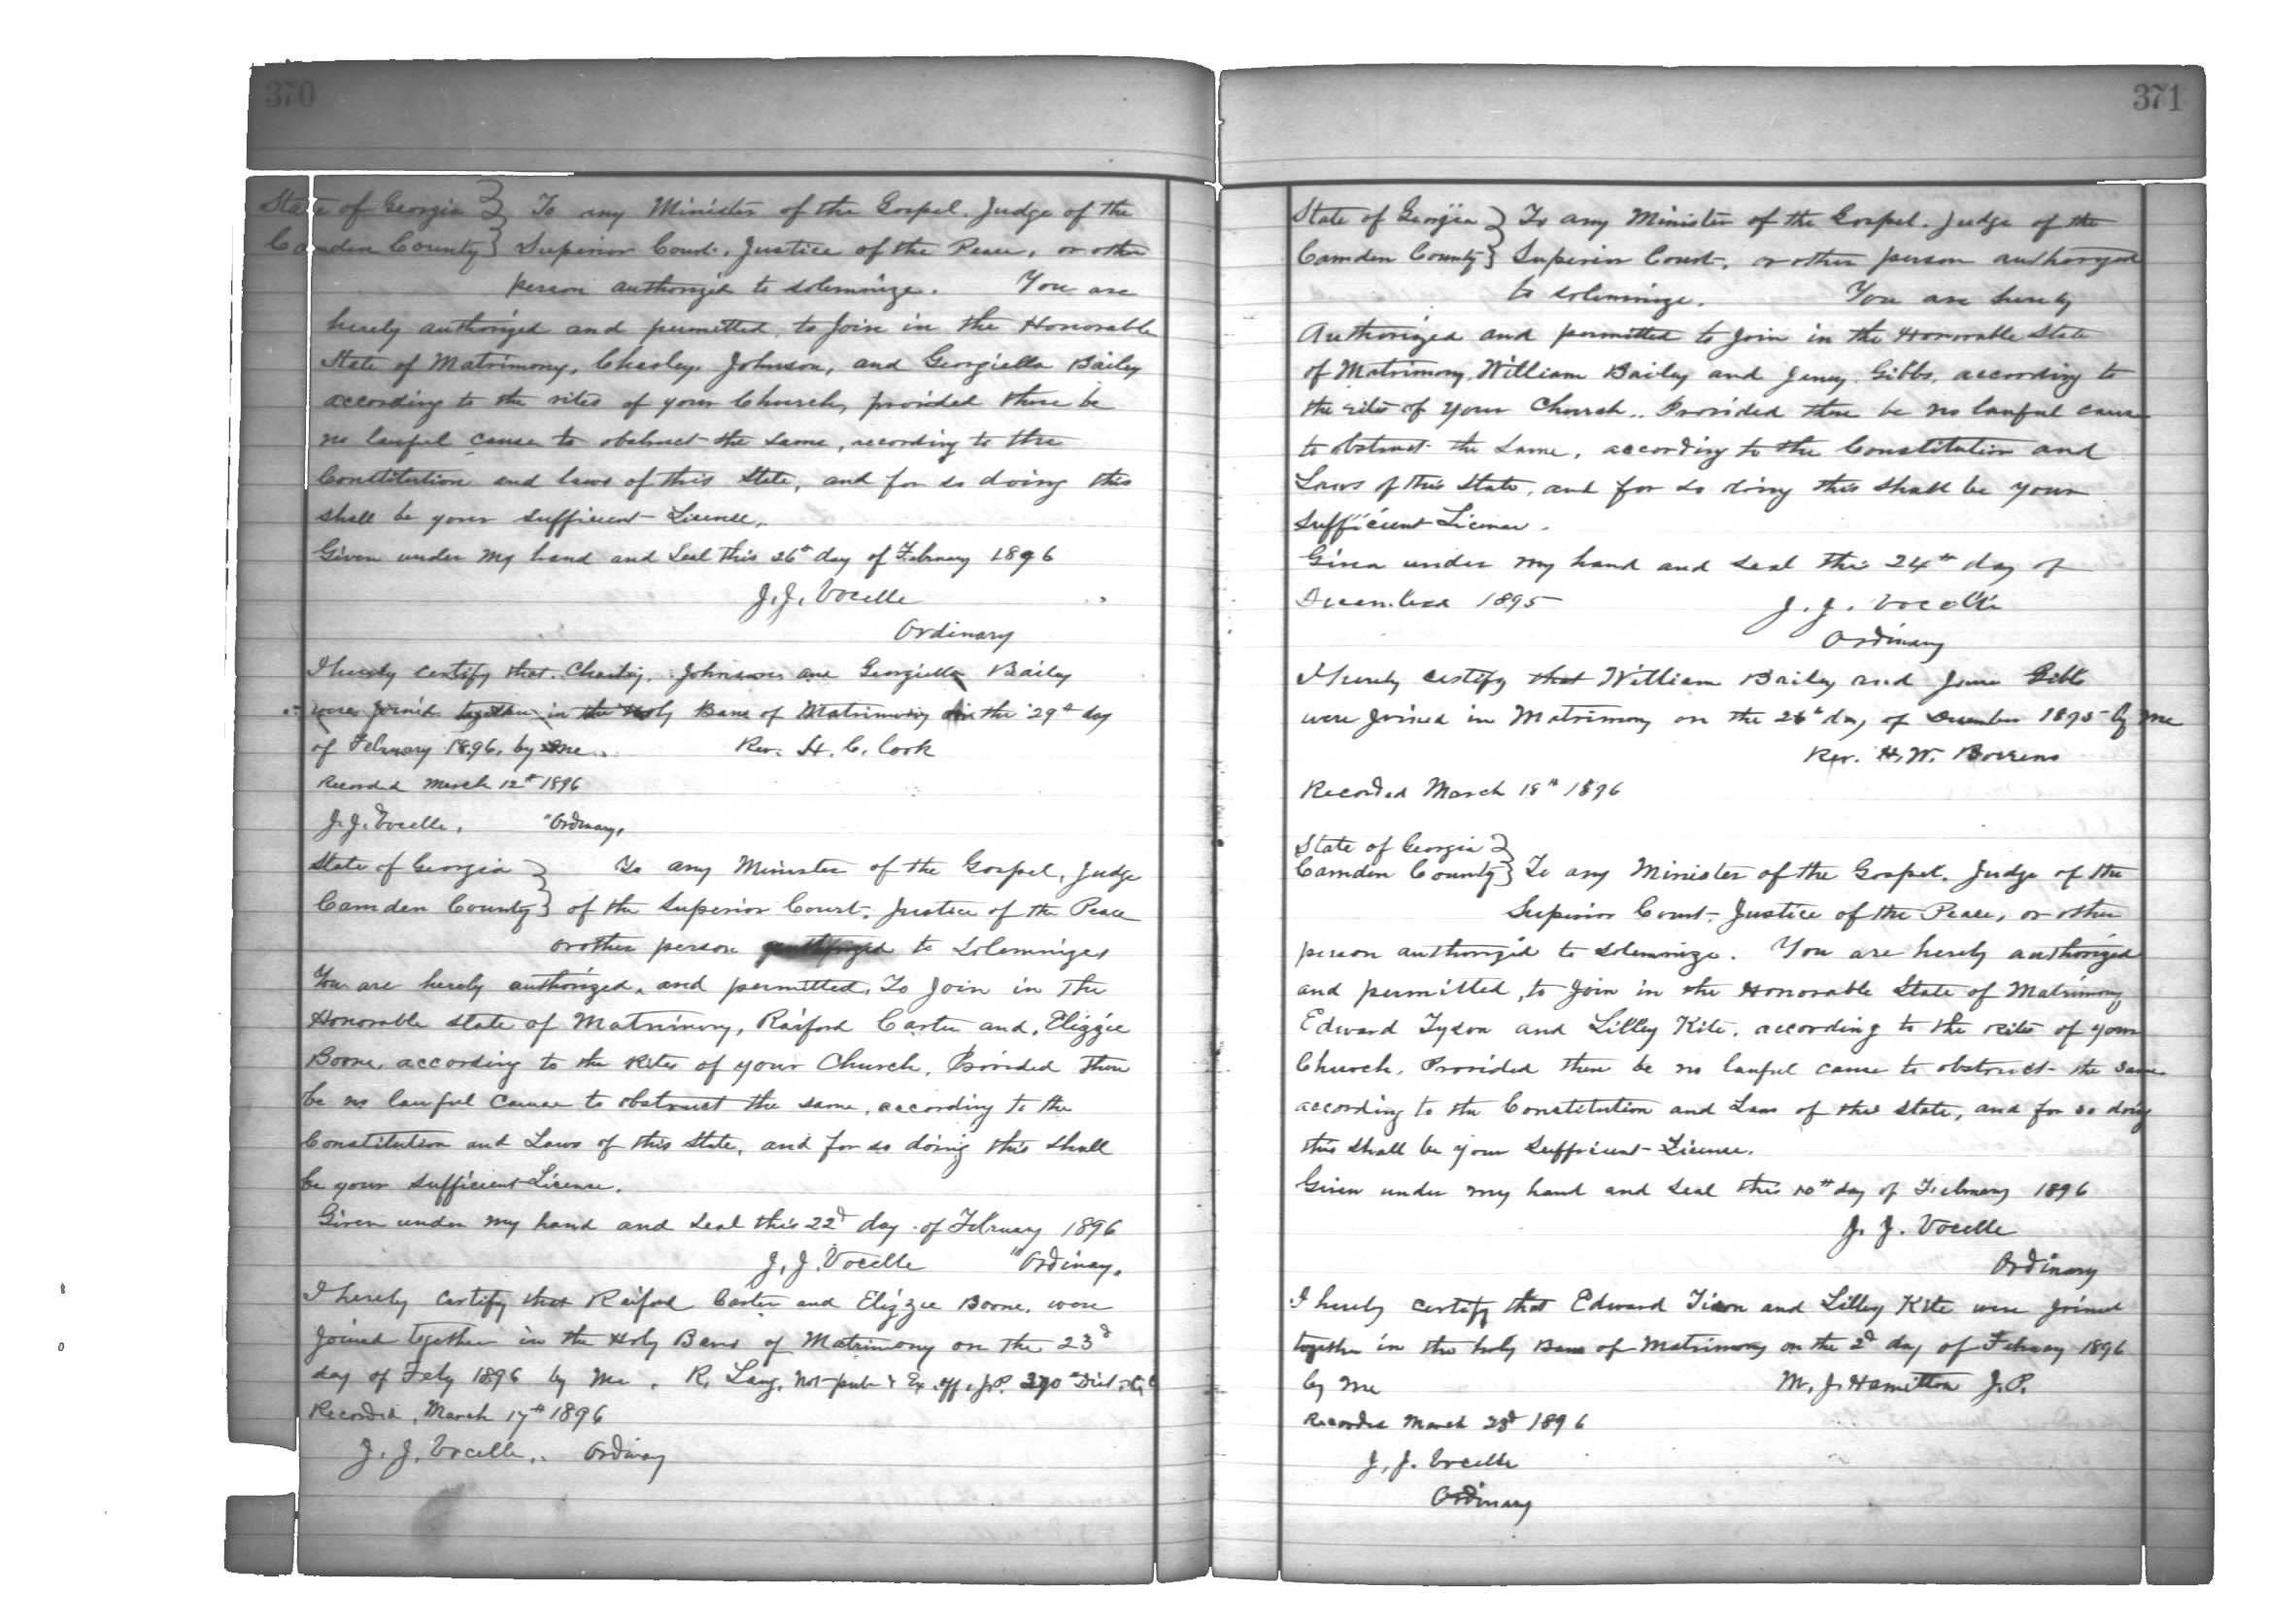 370
State of Georgia } To any Minister of the Gospel. Judge of the
Camden County } Superior Court, Justice of the Peace, or other
person authorized to solemnize. You are
hereby authorized and permitted, to Join in the Honorable
State of Matrimony, Charley Johnson, and Georgiella Bailey
according to the rites of your Church, provided there be
no lawful cause to obstruct the same, according to the
Constitution and laws of this State, and for so doing this
shall be your sufficient License.
Given under my hand and Seal this 26th day of February 1896
J. J. Vocelle
Ordinary
I hereby certify that Johnson and Georgiella Bailey
were joined together in the Holy Bans of Matrimony on the 29th day
of February 1896, by me. Rev. H. C. Cook
Recorded March 12th 1896
J. J. Vocelle, Ordinary,
State of Georgia } To any Minister of the Gospel, Judge
Camden County } of the Superior Court, Justice of the Peace
or other person authorized to Solemnize,
You are hereby authorized, and permitted, To Join in the
Honorable state of Matrimony, Raiford Carter and, Elizzie
Boone, according to the Rites of your Church, Provided there
be no lawful Cause to obstruct the same, according to the
Constitution and Laws of this State, and for so doing this shall
be your sufficient License.
Given under my hand and seal this 22d day of February 1896
J. J. Vocelle Ordinary.
I hereby certify that Raiford Carter and Elizzie Boone, were
Joined together in the Holy Bans of Matrimony on the 23d
day of Feby 1896 by me. R. Lang, Not pub & Ex. off. J.P. 270 Dist.
Recorded, March 17th 1896
J. J. Vocelle, Ordinary
371
State of Georgia } To any Minister of the Gospel. Judge of the
Camden County } Superior Court, or other person authorized
to solemnize. You are hereby
Authorized and permitted to Join in the Honorable State
of Matrimony, William Bailey and Janey Gibbs, according to
the rites of your Church. Provided there be no lawful cause
to obstruct the same, according to the Constitution and
Laws of this State, and for so doing this shall be your
sufficient License.
Given under my hand and seal this 24th day of
December 1895 J. J. Vocelle
Ordinary
I hereby certify that William Bailey and Gibbs
were Joined in Matrimony on the 26th day of December 1895 by me
Rev. H. W.
Recorded March 18th 1896
State of Georgia }
Camden County } To any Minister of the Gospel. Judge of the
Superior Court, Justice of the Peace, or other
person authorized to solemnize. You are hereby authorized
and permitted, to Join in the Honorable State of Matrimony
Edward Tyson and Lilley Kite, according to the rites of your
Church, Provided there be no lawful cause to obstruct the same
according to the Constitution and Laws of this state, and for so doing
this shall be your Sufficient License.
Given under my hand and Seal this 10th day of February 1896
J. J. Vocelle
Ordinary
I hereby certify that Edward and Lilley Kite were Joined
together in the holy Bans of Matrimony on the 2d day of February 1896
by me M. J. Hamilton J.P.
Recorded March 23d 1896
J. J. Vocelle
Ordinary